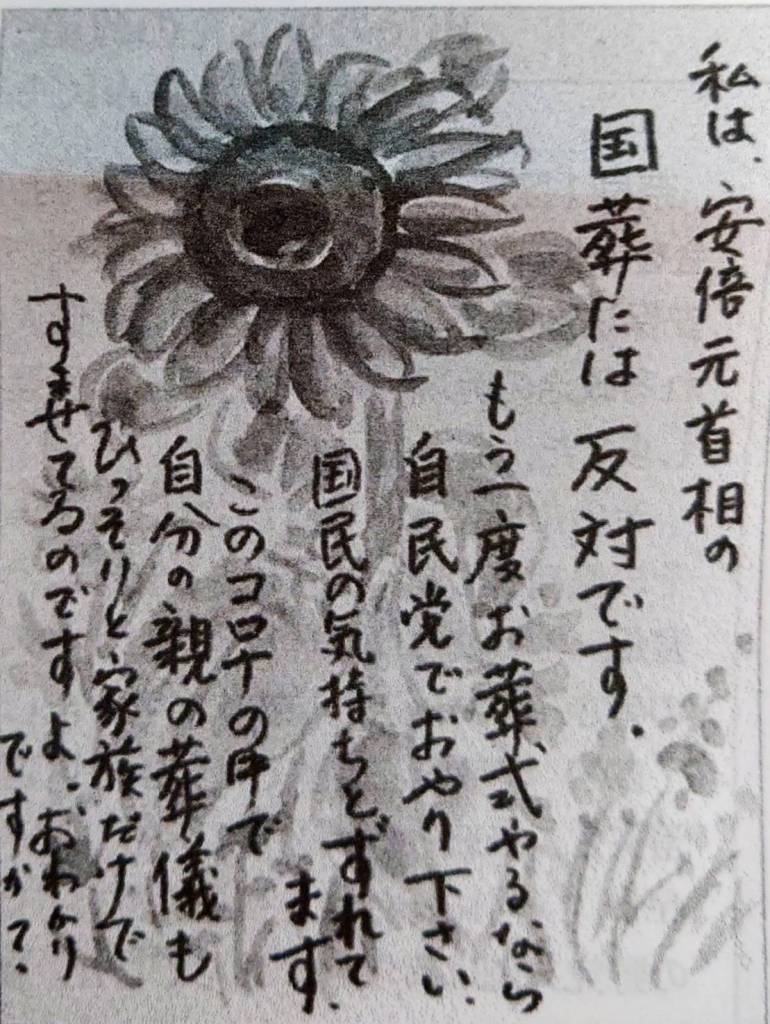 私は、安倍元首相の
国葬には反対です.
もう一度お葬式やるなら
自民党でおやり下さい.
国民の気持ちとずれて
ます.
このコロナの中で
自分の親の葬儀も
ひっそりと家族だけで
すませてるのですよ、おわかり
ですかて.